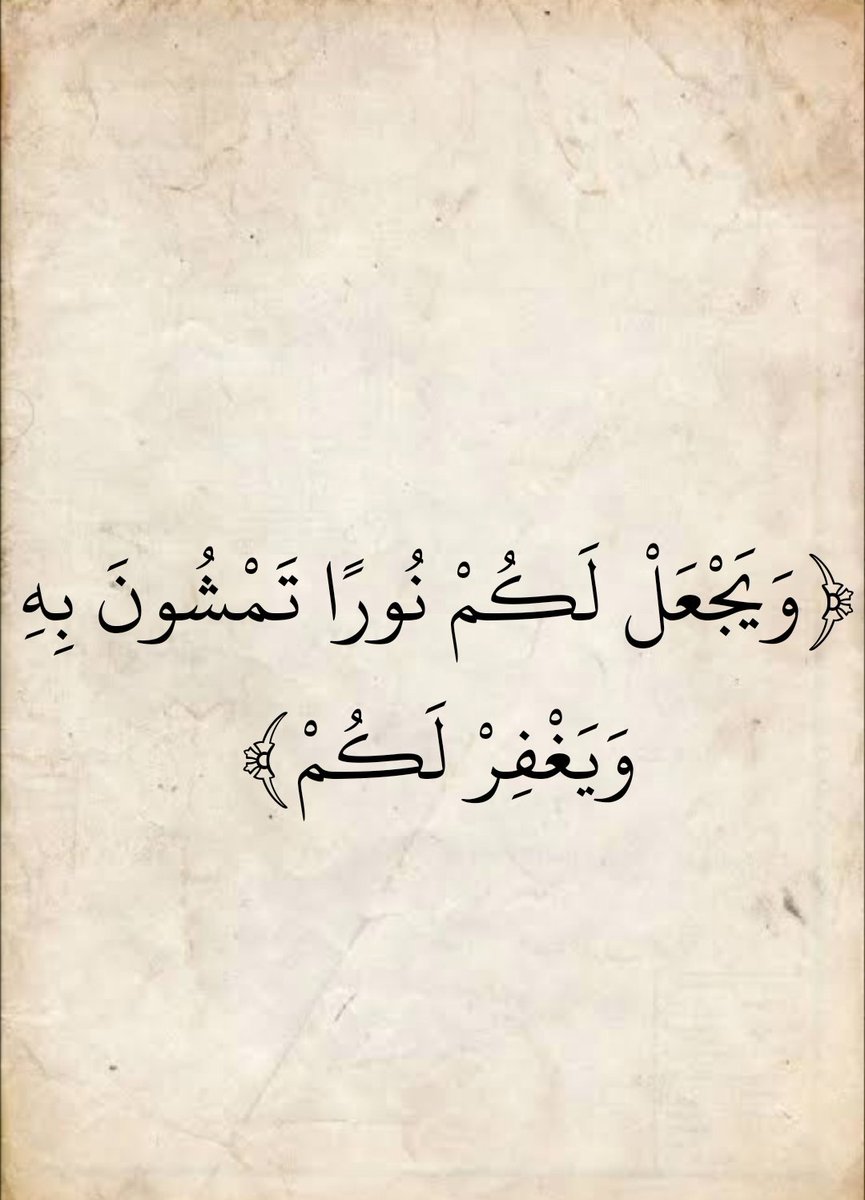 ﴿وَيَجْعَلْ لَكُمْ نُورًا تَمْشُونَ بِهِ
وَيَغْفِرْ لَكُمْ﴾